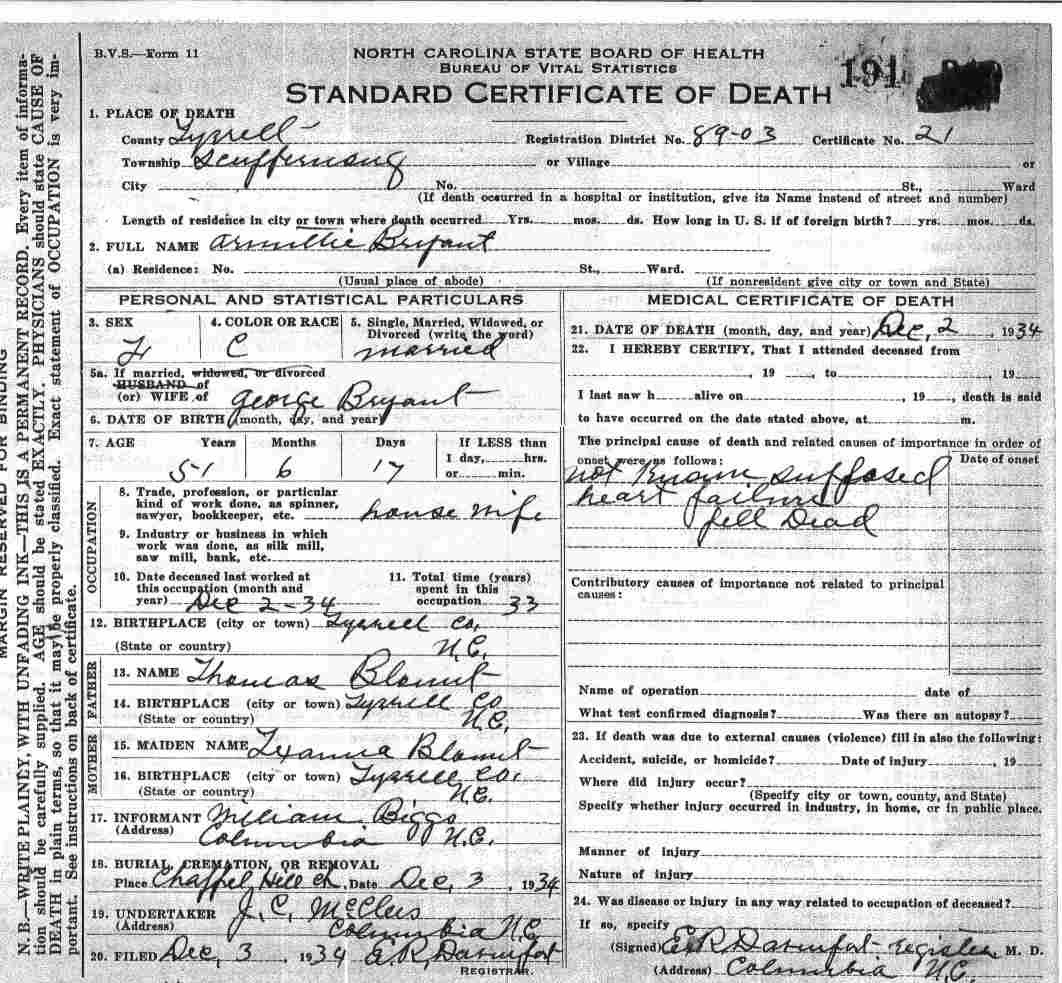 B.V.S.—Form 11
NORTH CAROLINA STATE BOARD OF HEALTH
BUREAU OF VITAL STATISTICS
STANDARD CERTIFICATE OF DEATH
191
1. PLACE OF DEATH
County Tyrrell Registration District No. 89-03 Certificate No. 21
Township Scuffernong or Village or
City No. St., Ward
(If death occurred in a hospital or institution, give its Name instead of street and number)
Length of residence in city or town where death occurred Yrs. mos. ds. How long in U. S. if of foreign birth? yrs. mos. ds.
2. FULL NAME Armittie Bryant
(a) Residence: No. St., Ward.
(Usual place of abode) (If nonresident give city or town and State)
PERSONAL AND STATISTICAL PARTICULARS
3. SEX 4. COLOR OR RACE 5. Single, Married, Widowed, or
Divorced (write the word)
F C married
5a. If married, widowed, or divorced
HUSBAND of
(or) WIFE of George Bryant
6. DATE OF BIRTH (month, day, and year)
7. AGE Years Months Days If LESS than
1 day, hrs.
51 6 17 or min.
OCCUPATION
8. Trade, profession, or particular
kind of work done, as spinner,
sawyer, bookkeeper, etc. house wife
9. Industry or business in which
work was done, as silk mill,
saw mill, bank, etc.
10. Date deceased last worked at 11. Total time (years)
this occupation (month and spent in this
year) Dec 2-34 occupation 33
12. BIRTHPLACE (city or town) Tyrrell Co,
(State or country) N.C.
FATHER
13. NAME Thomas Blount
14. BIRTHPLACE (city or town) Tyrrell Co
(State or country) N.C.
MOTHER
15. MAIDEN NAME Texanna Blount
16. BIRTHPLACE (city or town) Tyrrell Co,
(State or country) N.C.
17. INFORMANT William Biggs
(Address) Columbia N.C.
18. BURIAL, CREMATION, OR REMOVAL
Place Chappel Hill ch. Date Dec, 3, 1934
19. UNDERTAKER J. C. McClees
(Address) Columbia N.C.
20. FILED Dec, 3 1934 E.R. Davenport
REGISTRAR.
MEDICAL CERTIFICATE OF DEATH
21. DATE OF DEATH (month, day, and year) Dec, 2, 1934
22. I HEREBY CERTIFY, That I attended deceased from
, 19 , to , 19
I last saw h alive on , 19 , death is said
to have occurred on the date stated above, at m.
The principal cause of death and related causes of importance in order of
onset were as follows: Date of onset
not known supposed
heart failure
fell Dead
Contributory causes of importance not related to principal
causes:
Name of operation date of
What test confirmed diagnosis? Was there an autopsy?
23. If death was due to external causes (violence) fill in also the following:
Accident, suicide, or homicide? Date of injury , 19
Where did injury occur?
(Specify city or town, county, and State)
Specify whether injury occurred in industry, in home, or in public place.
Manner of injury
Nature of injury
24. Was disease or injury in any way related to occupation of deceased?
If so, specify
(Signed) E.R. Davenport register M. D.
(Address) Columbia N.C.
MARGIN RESERVED FOR BINDING
N. B.—WRITE PLAINLY, WITH UNFADING INK—THIS IS A PERMANENT RECORD. Every item of informa-
tion should be carefully supplied. AGE should be stated EXACTLY. PHYSICIANS should state CAUSE OF
DEATH in plain terms, so that it may be properly classified. Exact statement of OCCUPATION is very im-
portant. See instructions on back of certificate.